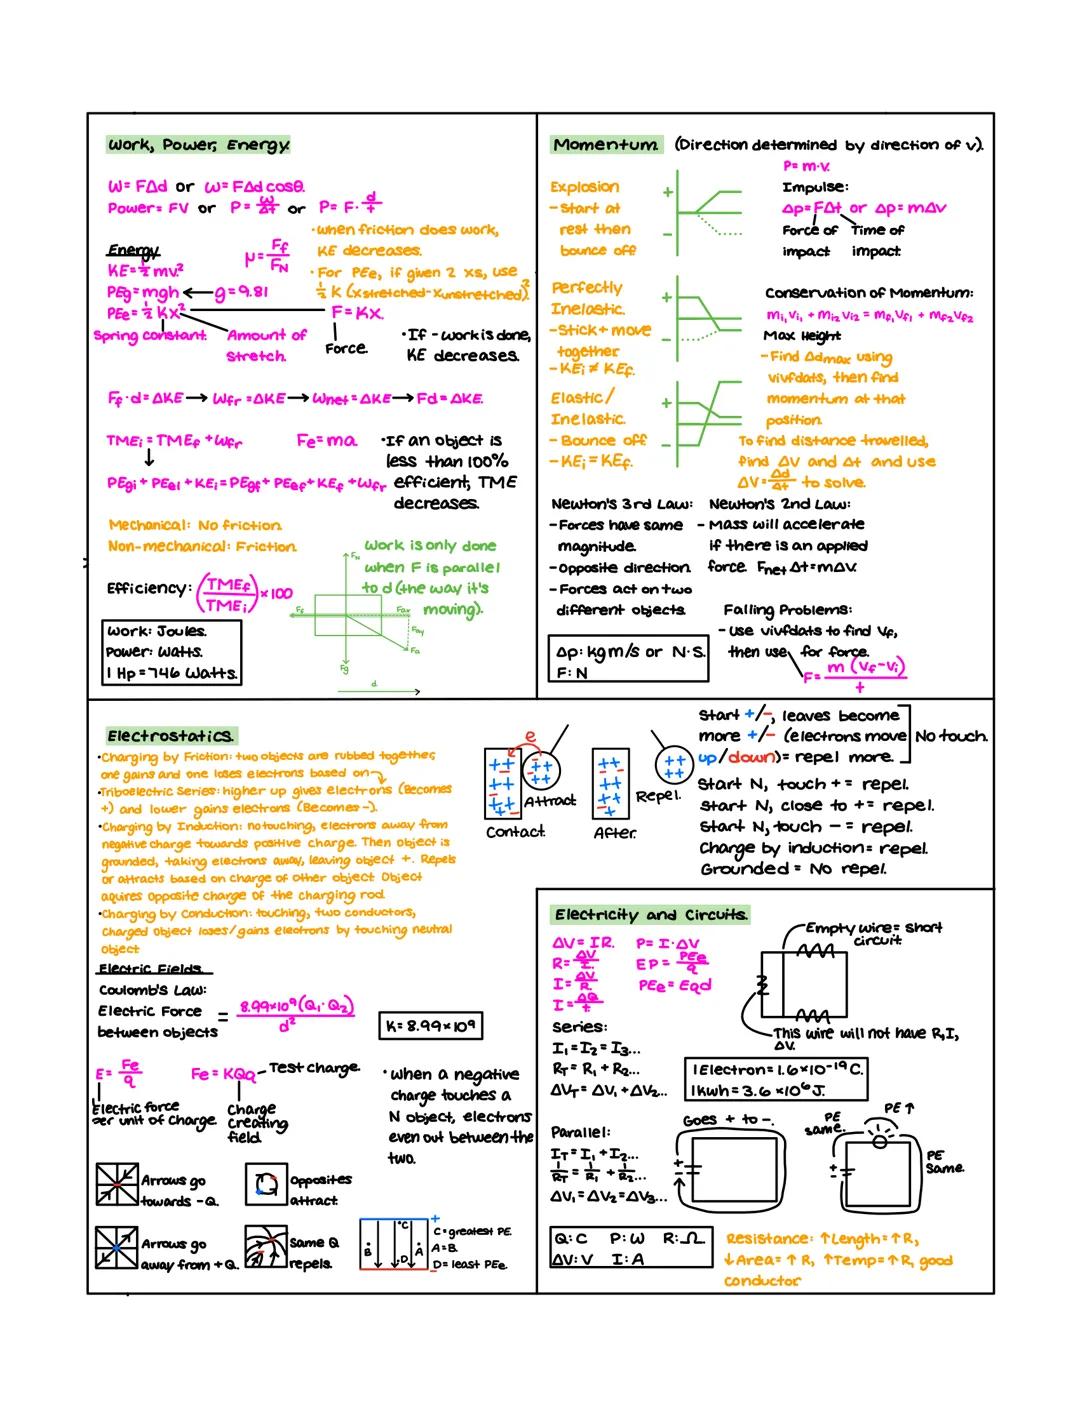 Work, Power, Energy.
W = FΔd or W = FΔd cosθ.
Power = FV or P = W/Δt or P = F · d/t
Energy
KE = ½ mv²
PEg = mgh ← g = 9.81
PEe = ½ Kx²
F = Kx.
Spring constant.
Amount of
stretch.
Force.
μ = Ff/FN
· When friction does work,
KE decreases.
· For PEe, if given 2 xs, use
½ K (xstretched - xunstretched)².
• If - work is done,
KE decreases.
Ff · d = ΔKE → Wfr = ΔKE → Wnet = ΔKE → Fd = ΔKE.
TMEi = TMEf + Wfr
Fe = ma.
↓
PEgi + PEei + KEi = PEgf + PEef + KEf + Wfr
• If an object is
less than 100%
efficient, TME
decreases.
Mechanical: No friction.
Non-mechanical: Friction.
Efficiency: (TMEf/TMEi) × 100
Work is only done
when F is parallel
to d (the way it's
moving).
FN
Ff
Fax
Fay
Fa
Fg
d
Work: Joules.
Power: Watts.
1 Hp = 746 Watts.
Momentum. (Direction determined by direction of v).
P = m·v.
Impulse:
Δp = FΔt or Δp = mΔv
Force of
impact
Time of
impact.
Explosion
- Start at
rest then
bounce off
+
-
Perfectly
Inelastic.
- Stick + move
together
- KEi ≠ KEf.
+
-
Elastic/
Inelastic.
- Bounce off
- KEi = KEf.
+
-
Conservation of Momentum:
mi1vi1 + mi2vi2 = mf1vf1 + mf2vf2
Max Height
- Find Δdmax using
vivfdats, then find
momentum at that
position.
To find distance travelled,
find ΔV and Δt and use
ΔV = Δd/Δt to solve.
Newton's 3rd Law:
- Forces have same
magnitude.
- Opposite direction
- Forces act on two
different objects.
Newton's 2nd Law:
- Mass will accelerate
if there is an applied
force. Fnet Δt = mΔV.
Falling Problems:
- use vivfdats to find Vf,
then use for force.
F = m (Vf - Vi)/t
Δp: kgm/s or N·S.
F: N
Electrostatics.
• Charging by Friction: two objects are rubbed together,
one gains and one loses electrons based on
• Triboelectric Series: higher up gives electrons (Becomes
+) and lower gains electrons (Becomes -).
• Charging by Induction: no touching, electrons away from
negative charge towards positive charge. Then object is
grounded, taking electrons away, leaving object +. Repels
or attracts based on charge of other object. Object
aquires opposite charge of the charging rod.
• Charging by Conduction: touching, two conductors,
charged object loses/gains electrons by touching neutral
object
e
++
++
++
++
++
Attract
Contact
++
++
++
++
++
Repel.
After.
Start +/-, leaves become
more +/- (electrons move
up/down) = repel more.
No touch.
Start N, touch + = repel.
Start N, close to + = repel.
Start N, touch - = repel.
Charge by induction = repel.
Grounded = No repel.
Electric Fields.
Coulomb's Law:
Electric Force
between objects
= 8.99×10⁹(Q1·Q2)/d²
K = 8.99×10⁹
E = Fe/q
Fe = KQq - Test charge.
Electric force
per unit of charge.
Charge
creating
field.
• When a negative
charge touches a
N object, electrons
even out between the
two.
Arrows go
towards -Q.
Opposites
attract.
Arrows go
away from +Q.
Same Q
repels.
+
B
•C
•D
A
-
C = greatest PE.
A = B.
D = least PEe.
Electricity and Circuits.
ΔV = IR.
R = ΔV/I.
I = ΔV/R.
I = ΔQ/t.
P = I·ΔV
EP = PEe/q
PEe = Eqd
Empty wire = short
circuit.
This wire will not have R, I,
ΔV.
Series:
I1 = I2 = I3...
RT = R1 + R2...
ΔVT = ΔV1 + ΔV2...
1 Electron = 1.6×10⁻¹⁹C.
1 kwh = 3.6 ×10⁶ J.
Parallel:
IT = I1 + I2...
1/RT = 1/R1 + 1/R2...
ΔV1 = ΔV2 = ΔV3...
Goes + to -.
+
-
PE
same.
PE ↑
PE
Same.
+
-
Q: C P: W R: Ω
ΔV: V I: A
Resistance: ↑ Length = ↑ R,
↓ Area = ↑ R, ↑ Temp = ↑ R, good
conductor